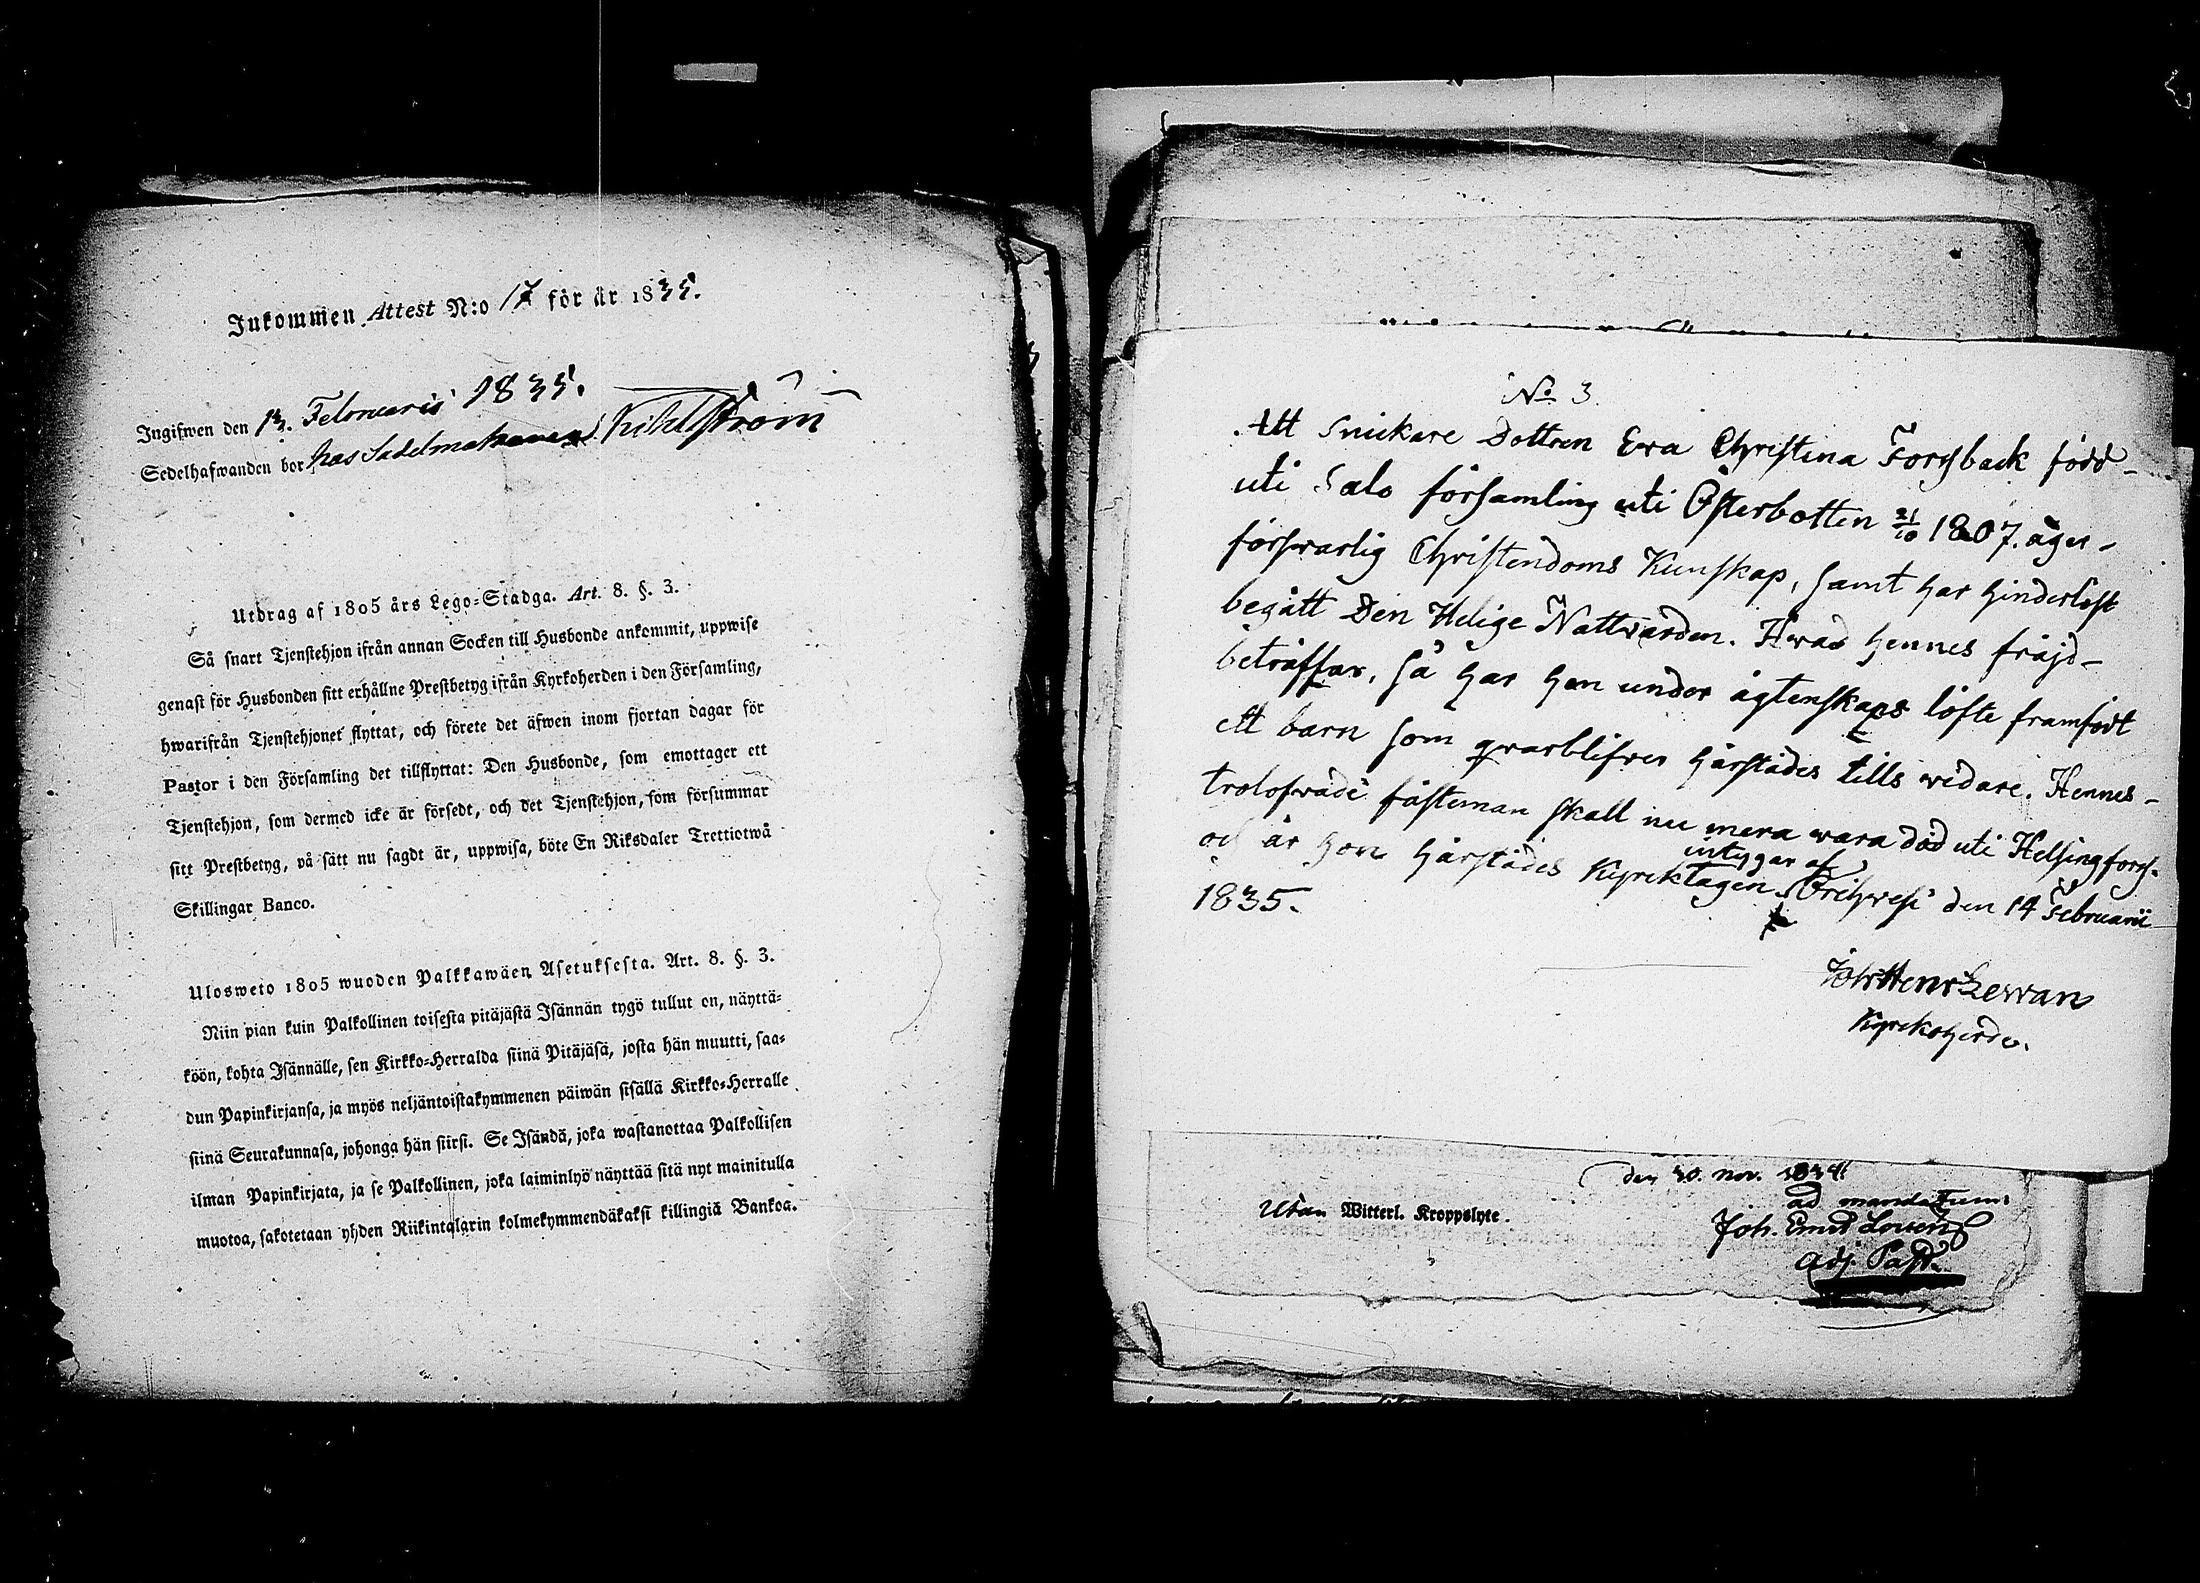 Inkommen Attest N:o 17 för år 1835.
Ingifwen den 13. Februarii 1835.
Sedelhafwanden bor hos Sadelmakaren Kihlström
Utdrag af 1805 års Lego=Stadga. Art. 8. §. 3.
Så snart Tjenstehjon ifrån annan Socken till Husbonde ankommit, uppwise
genast för Husbonden sitt erhållne Prestbetyg ifrån Kyrkoherden i den Församling,
hwarifrån Tjenstehjonet flyttat, och förete det äfwen inom fjortan dagar för
Pastor i den Församling det tillflyttat: Den Husbonde, som emottager ett
Tjenstehjon, som dermed icke är försedt, och det Tjenstehjon, som försummar
sitt Prestbetyg, på sätt nu sagdt är, uppwisa, böte En Riksdaler Trettiotwå
Skillingar Banco.
Ulosweto 1805 wuoden Palkkawäen Asetuksesta. Art. 8. §. 3.
Niin pian kuin Palkollinen toisesta pitäjästä Isännän tygö tullut on, näyttä=
köön, kohta Isännälle, sen Kirkko=Herralda siinä Pitäjäsä, josta hän muutti, saa=
dun Papinkirjansa, ja myös neljäntoistakymmenen päiwän sisällä Kirkko=Herralle
siinä Seurakunnasa, johonga hän siirsi. Se Isändä, joka wastanottaa Palkollisen
ilman Papinkirjata, ja se Palkollinen, joka laiminlyö näyttää sitä nyt mainitulla
muotoa, sakotetaan yhden Riikintalarin kolmekymmendäkaksi killingiä Bankoa.
No 3.
Att Snickare Dottren Eva Christina Forssback född
uti Salo församling uti Österbotten 21/10 1807. äger
försvarlig Christendoms Kunskap, samt har hinderlöst
begått Den Helige Nattvarden. Hwad hennes fräjd
beträffar, så har hon under ägtenskaps löfte framfödt
ett barn som qvarblifver härstädes tills widare. Hennes
trolofvade fästeman skall nu mera wara död uti Helsingfors.
och är hon härstädes Kyrcktagen, intygar af Orihvesi den 14 Februarii
1835.
Joh Henr
Kyrckoherde.
den 30. nov. 1834.
ad mandatum:
Utan Witterl. Kroppslyte.
Joh. Emil
adj. Past.